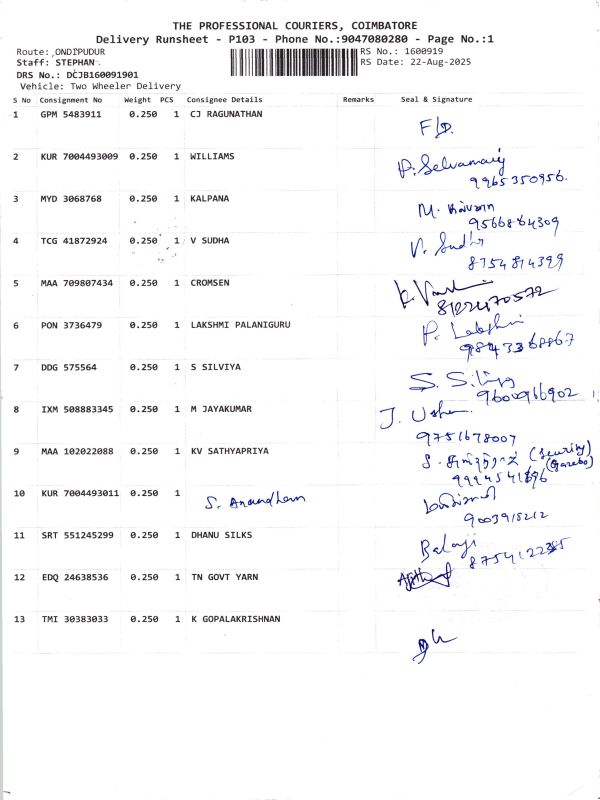 THE PROFESSIONAL COURIERS, COIMBATORE
Delivery Runsheet - P103 - Phone No.:9047080280 - Page No.:1
Route: ONDIPUDUR RS No.: 1600919
Staff: STEPHAN RS Date: 22-Aug-2025
DRS No.: DCJB160091901
Vehicle: Two Wheeler Delivery
S No Consignment No Weight PCS Consignee Details Remarks Seal & Signature
1 GPM 5483911 0.250 1 CJ RAGUNATHAN
2 KUR 7004493009 0.250 1 WILLIAMS P. Selvamary
9965350956.
3 MYD 3068768 0.250 1 KALPANA M.
9566864309
4 TCG 41872924 0.250 1 V SUDHA V. Sudha
8754814399
5 MAA 709807434 0.250 1 CROMSEN
8122470572
6 PON 3736479 0.250 1 LAKSHMI PALANIGURU P. Lakshmi
9843368867
7 DDG 575564 0.250 1 S SILVIYA S. Silviya
9600966902
8 IXM 508883345 0.250 1 M JAYAKUMAR J. Usha
9751678007
9 MAA 102022088 0.250 1 KV SATHYAPRIYA (Security)
9994541696
10 KUR 7004493011 0.250 1 S. Anandham
9003915212
11 SRT 551245299 0.250 1 DHANU SILKS Balaji
12 EDQ 24638536 0.250 1 TN GOVT YARN
13 TMI 30383033 0.250 1 K GOPALAKRISHNAN